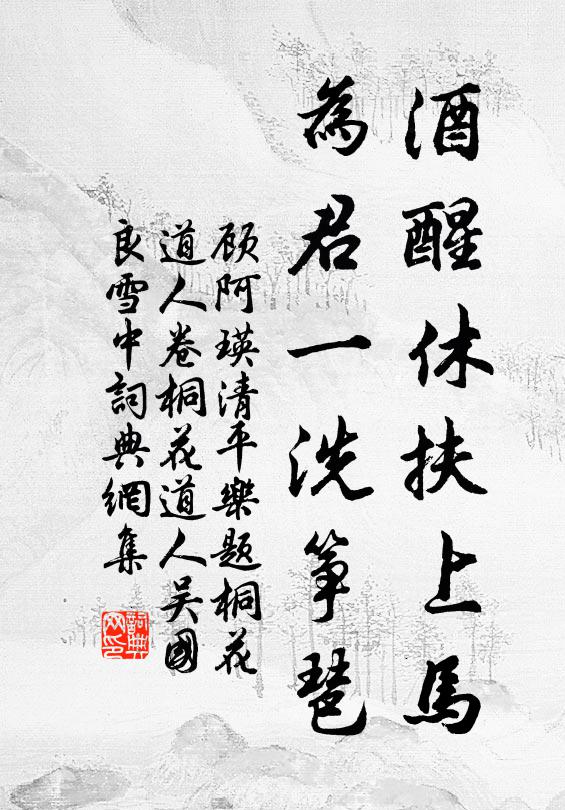 酒醒休扶上馬
為君一洗箏琶
顧阿瑛清平樂題桐花
道人卷桐花道人吳國
良雪中詞典網集
詞典
网印